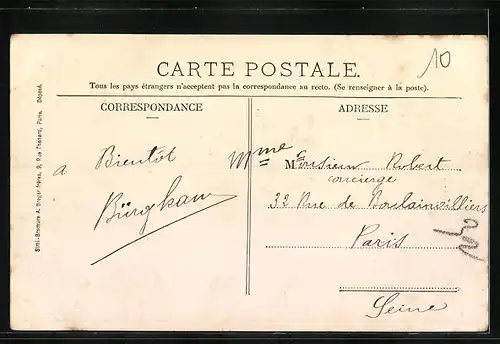 10
CARTE POSTALE.
Tous les pays étrangers n'acceptent pas la correspondance au recto. (Se renseigner à la poste).
CORRESPONDANCE
ADRESSE
a Bientôt
Mme
Monsieur Robert
concierge
33 Rue de Boulainvilliers
Paris
Seine
Simi-Bromure A. Breger frères, 9, Rue Thénard, Paris. Déposé.